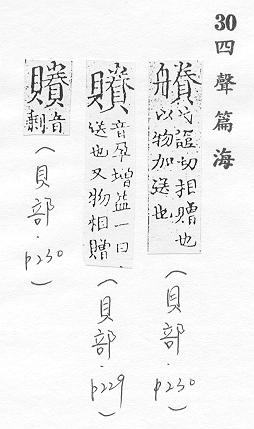 30 四聲篇海
弋證切相贈也
以物加送也
(貝部．p230)
音孕增益一曰
送也又物相贈
(貝部．p229)
音
剩
(貝部．p230)